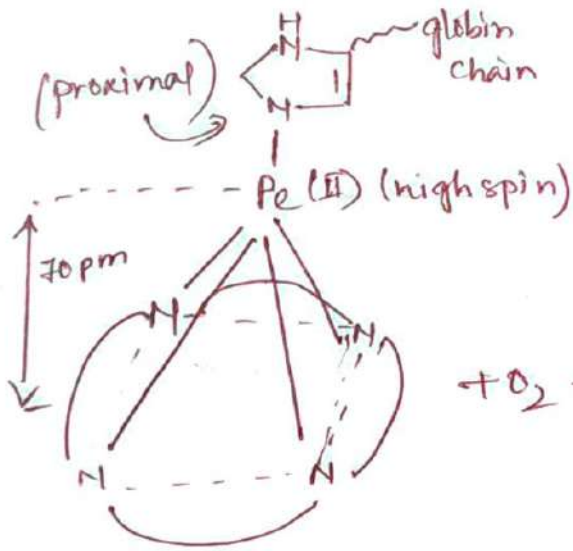 H
N
globin
chain
(proximal)
N
Fe (II) (high spin)
70 pm
N N
+O2
N N